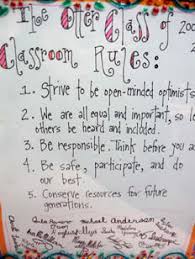 The Otter Class of 200
Classroom Rules:
1. Strive to be open-minded optimists
2. We are all equal and important, so let
others be heard and included.
3. Be responsible. Think before you a
4. Be safe, participate, and do
our best.
5. Conserve resources for future
generations.